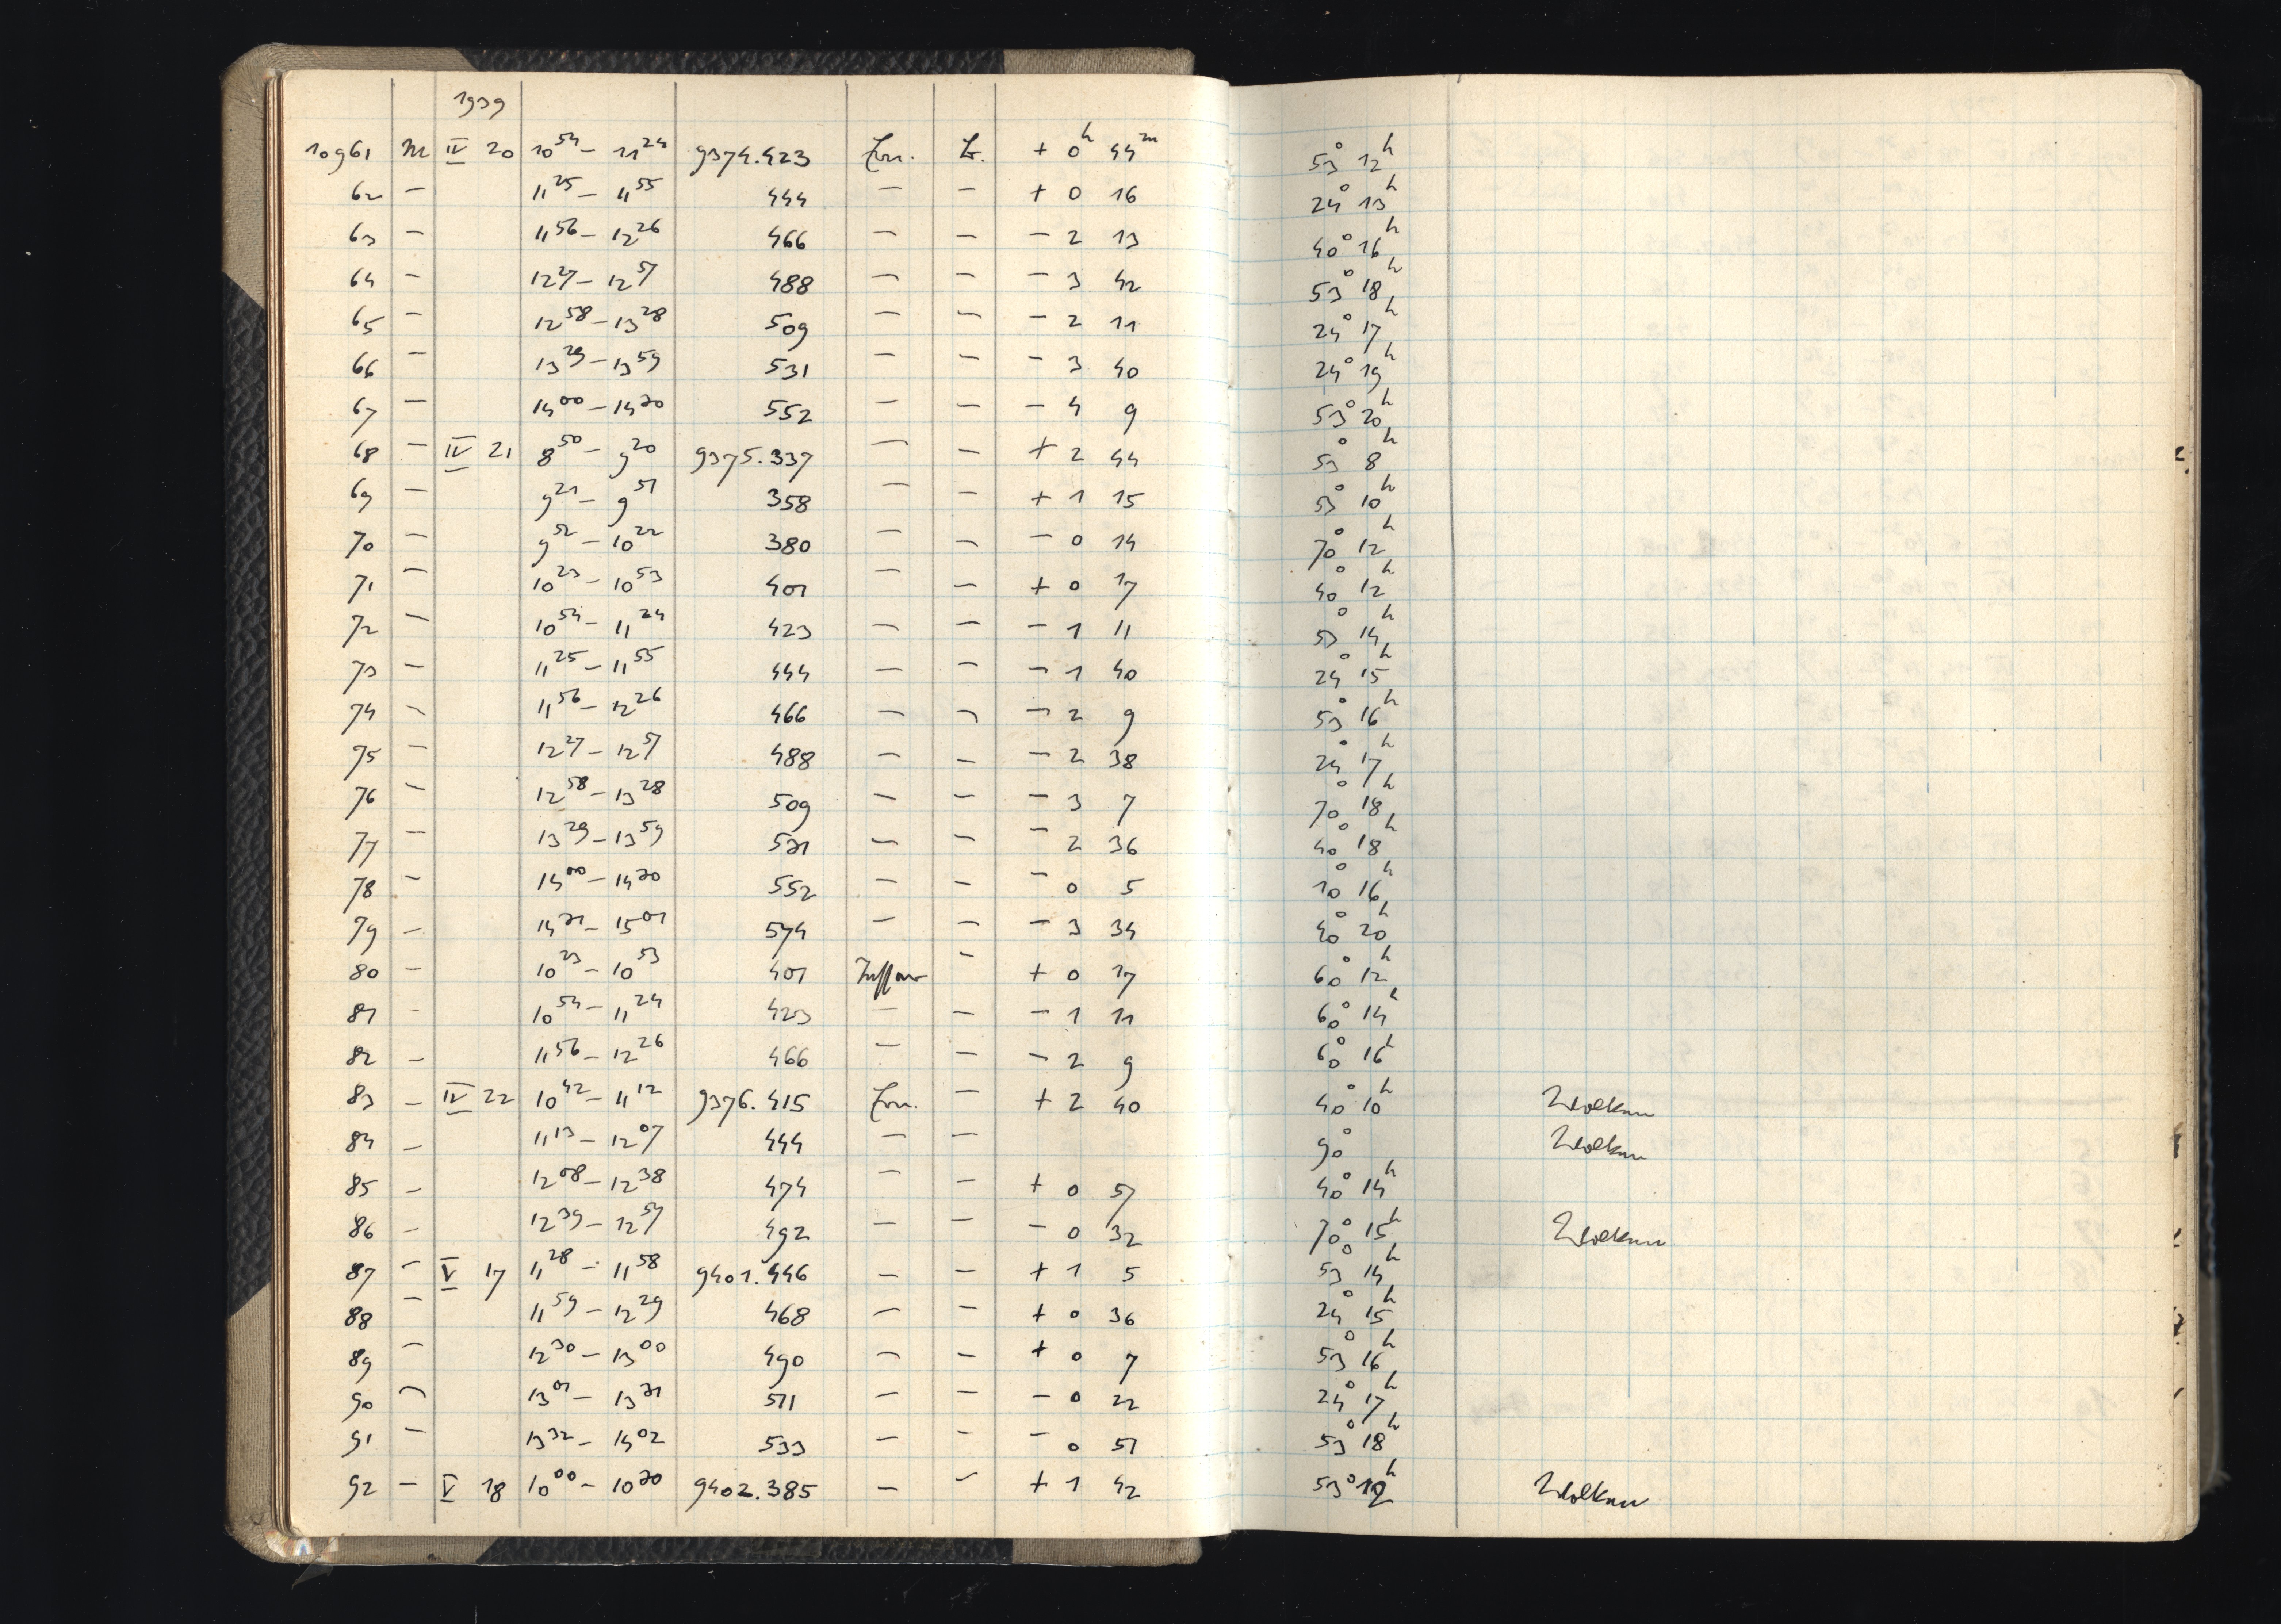 1939
10961 M IV 20 10 54 – 11 24 9374.423 + 0h 44m 53° 12h
62 – 11 25 – 11 55 444 – – + 0 16 24° 13h
63 – 11 56 – 12 26 466 – – – 2 13 40° 16h
64 – 12 27 – 12 57 488 – – – 3 42 53° 18h
65 – 12 58 – 13 28 509 – – – 2 11 24° 17h
66 – 13 29 – 13 59 531 – – – 3 40 24° 19h
67 – 14 00 – 14 30 552 – – – 4 9 53° 20h
68 – IV 21 8 50 – 9 20 9375.337 – – + 2 44 53° 8h
69 – 9 21 – 9 51 358 – – + 1 15 53° 10h
70 – 9 52 – 10 22 380 – – – 0 14 70° 12h
71 – 10 23 – 10 53 401 – – + 0 17 40° 12h
72 – 10 54 – 11 24 423 – – – 1 11 53° 14h
73 – 11 25 – 11 55 444 – – – 1 40 24° 15h
74 – 11 56 – 12 26 466 – – – 2 9 53° 16h
75 – 12 27 – 12 57 488 – – – 2 38 24° 17h
76 – 12 58 – 13 28 509 – – – 3 7 70° 18h
77 – 13 29 – 13 59 531 – – – 2 36 40° 18h
78 – 14 00 – 14 30 552 – – – 0 5 10° 16h
79 – 14 31 – 15 01 574 – – – 3 34 40° 20h
80 – 10 23 – 10 53 401 – + 0 17 60° 12h
81 – 10 54 – 11 24 423 – – – 1 11 60° 14h
82 – 11 56 – 12 26 466 – – – 2 9 60° 16h
83 – IV 22 10 42 – 11 12 9376.415 – + 2 40 40° 10h Wolken
84 – 11 13 – 12 07 444 – – 90° Wolken
85 – 12 08 – 12 38 474 – – + 0 57 40° 14h
86 – 12 39 – 12 57 492 – – – 0 32 70° 15h Wolken
87 – V 17 11 28 – 11 58 9401.446 – – + 1 5 53° 14h
88 – 11 59 – 12 29 468 – – + 0 36 24° 15h
89 – 12 30 – 13 00 490 – – + 0 7 53° 16h
90 – 13 01 – 13 31 511 – – – 0 22 24° 17h
91 – 13 32 – 14 02 533 – – – 0 51 53° 18h
92 – V 18 10 00 – 10 30 9402.385 – – + 1 42 53° 12h Wolken